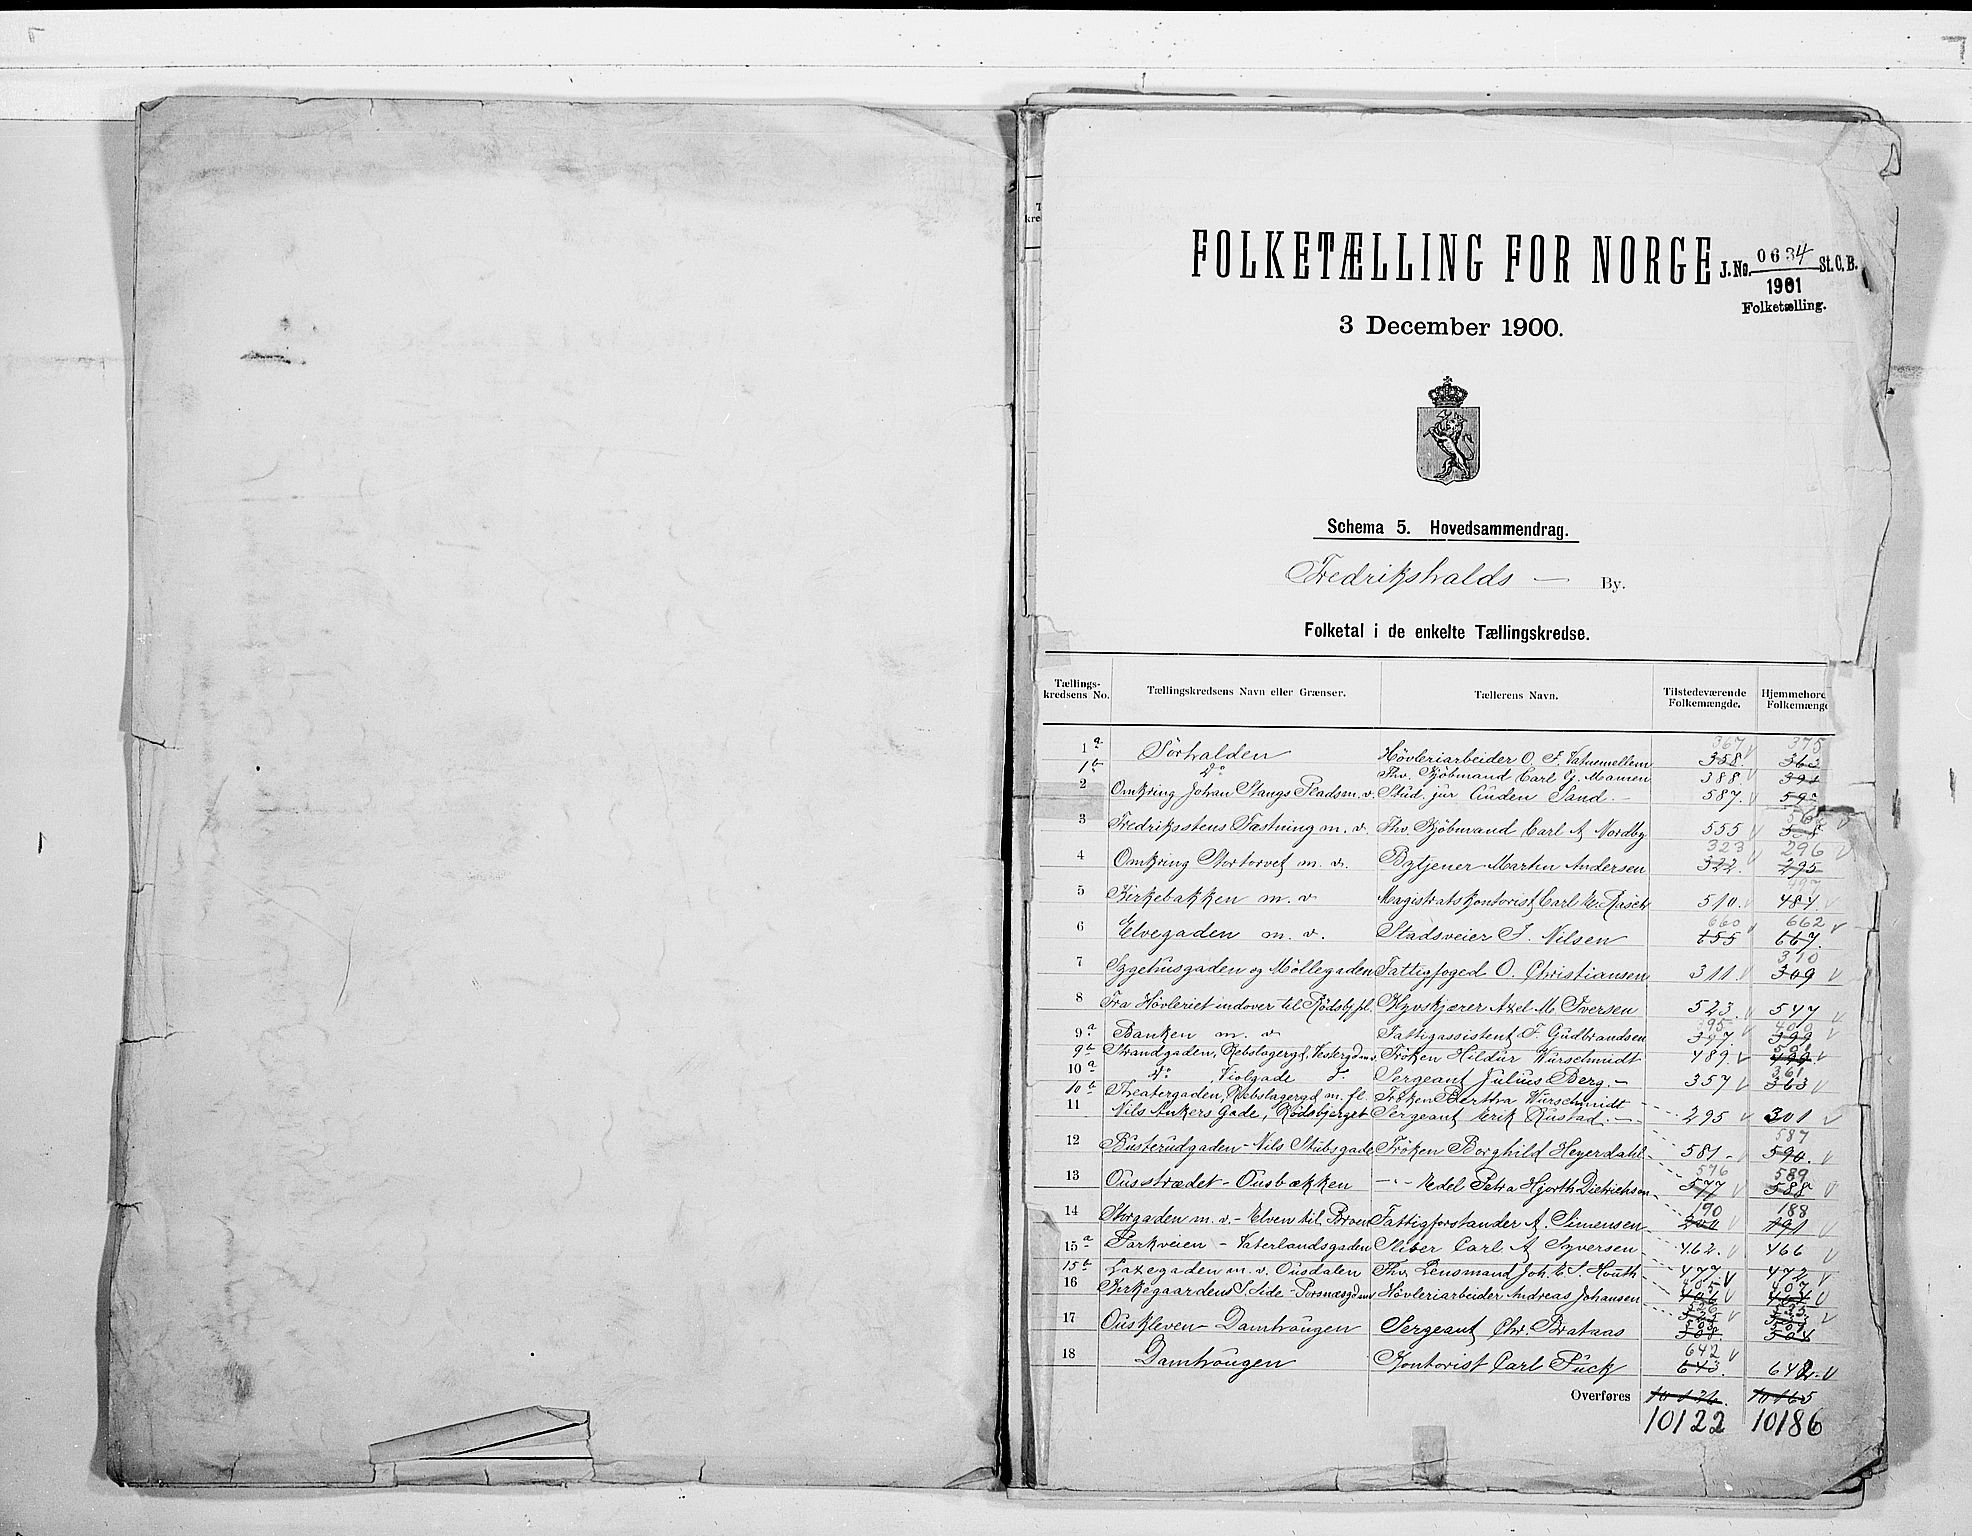 FOLKETÆLLING FOR NORGE
J. No. 0634 St. C. B.
1901
Folketælling.
3 December 1900.
Schema 5. Hovedsammendrag.
Fredrikshalds — By.
Folketal i de enkelte Tællingskredse.
Tællings-kredsens No. Tællingskredsens Navn eller Grænser. Tællerens Navn. Tilstedeværende Folkemængde. Hjemmehøre Folkemængde
367 375
1a Sørhalden Høvleriarbeider O. F. Vatnemellem 358 363
1b Do Fhv. Kjøbmand Carl G. Mamen 388 391
2 Omkring Johan Stangs Plads m. v. Stud. jur Auden Sand. — 587. 592
3 Fredrikstens Fæstning m. v. Fhv. Kjøbmand Carl A. Nordby 555 558
323 296
4 Omkring Stortorvet m. v. Bytjener Martin Andersen 322. 295
5 Kirkebakken m. v Magistratskontorist Carl E. Risch 510. 484
660 662
6 Elvegaden m. v. Stadsveier J. Nilsen 655 667.
310
7 Sygehusgaden og Møllegaden Fattigfoged O. Christiansen 311 309
8 Fra Høvleriet indover til Rødsbj. pl. Kyvskjærer Axel M. Iversen 523. 547
395 400
9a Banken m. v Fattigassistent F. Gudbrandsen 397. 399
501
9b Strandgaden, Rebslagergd, Vestergd m v. Frøken Hildur Würschmidt 489. 499
361
10a Do , Violgade Sergeant Julius Berg. — 357 363
10b Theatergaden, Rebslagergd. m. fl. Frøken Berttra Würschmidt
11 Nils Ankers Gade, Rødsbjerget Sergeant Erik Rustad. — 295 301
587
12 Busterudgaden - Nils Stubsgade Frøken Borghild Heyerdahl 581 - 590.
576 589
13 Ousstrædet - Ousbækken — " — Edel Petra Hjorth Dietrichson 577 588
190 188
14 Storgaden m. v. - Elven til Broen Fattigforstander A. Simensen 201 191
15a Parkveien - Vaterlandsgaden Sliber Carl A. Syversen 462. 466
15b Laxegaden m. v. Ousdalen Fhv. Lensmand Joh. E. S. Houth 477 472
405 407
16 Kirkegaardens S. Side - Porsnæsgd m v Høvleriarbeider Andreas Johansen 406 404
17 Ouskleven - Damhaugen Sergeant Chr. Brataas 508 504
642
18 Damhaugen Kontorist Carl Pück 643. 642.
Overføres 10126. 10165
10122 10186